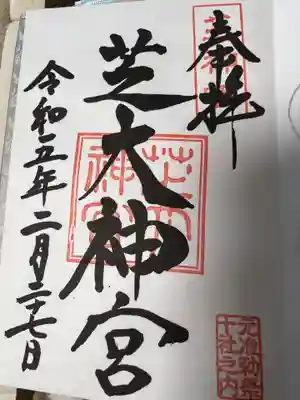 奉拝
元准勅祭
十社之内
芝大神宮
令和五年二月二十七日